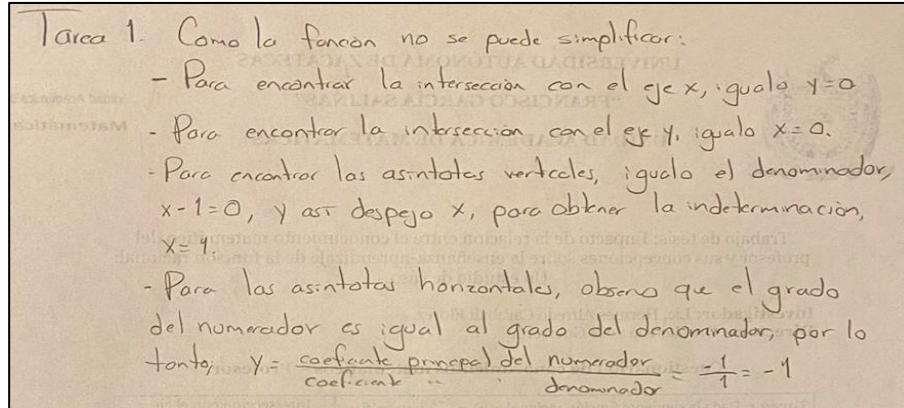 Tarea 1. Como la función no se puede simplificar:
- Para encontrar la intersección con el eje x, igualo y=0
- Para encontrar la intersección con el eje y, igualo x=0.
- Para encontrar las asíntotas verticales, igualo el denominador,
x-1=0, y así despejo x, para obtener la indeterminación,
x=1.
- Para las asíntotas horizontales, observo que el grado
del numerador es igual al grado del denominador, por lo
tanto, y = coeficiente principal del numerador / coeficiente " " denominador = -1/1 = -1